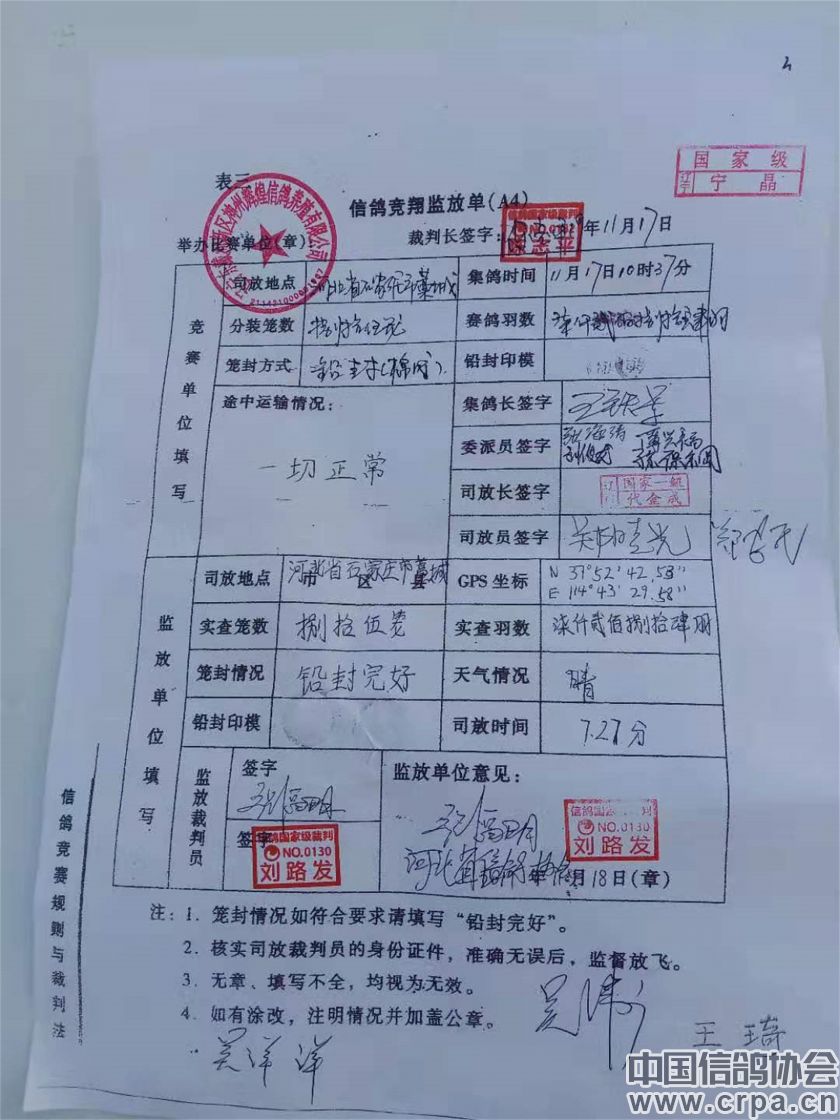 表三
国家级
宁晶
信鸽竞翔监放单(A4)
举办比赛单位(章):
裁判长签字:
年11月17日
信鸽国家级裁判
竞赛单位填写
司放地点
集鸽时间
11月17日10时37分
分装笼数
赛鸽羽数
笼封方式
铅封印模
途中运输情况:
一切正常
集鸽长签字
委派员签字
司放长签字
国家一级
代金成
司放员签字
监放单位填写
司放地点
河北省石家庄市藁城
市 区 县
GPS坐标
N 37°52′42.53″
E 114°43′29.58″
实查笼数
捌拾伍笼
实查羽数
柒仟贰佰捌拾肆羽
笼封情况
铅封完好
天气情况
晴
铅封印模
司放时间
7.27分
监放裁判员
签字
签字
信鸽国家级裁判
NO.0130
刘路发
监放单位意见:
NO.0130
刘路发
月18日(章)
注:1. 笼封情况如符合要求请填写“铅封完好”。
2. 核实司放裁判员的身份证件,准确无误后,监督放飞。
3. 无章、填写不全,均视为无效。
4. 如有涂改,注明情况并加盖公章。
吴洋洋
王琦
信鸽竞赛规则与裁判法
中国信鸽协会
www.crpa.cn